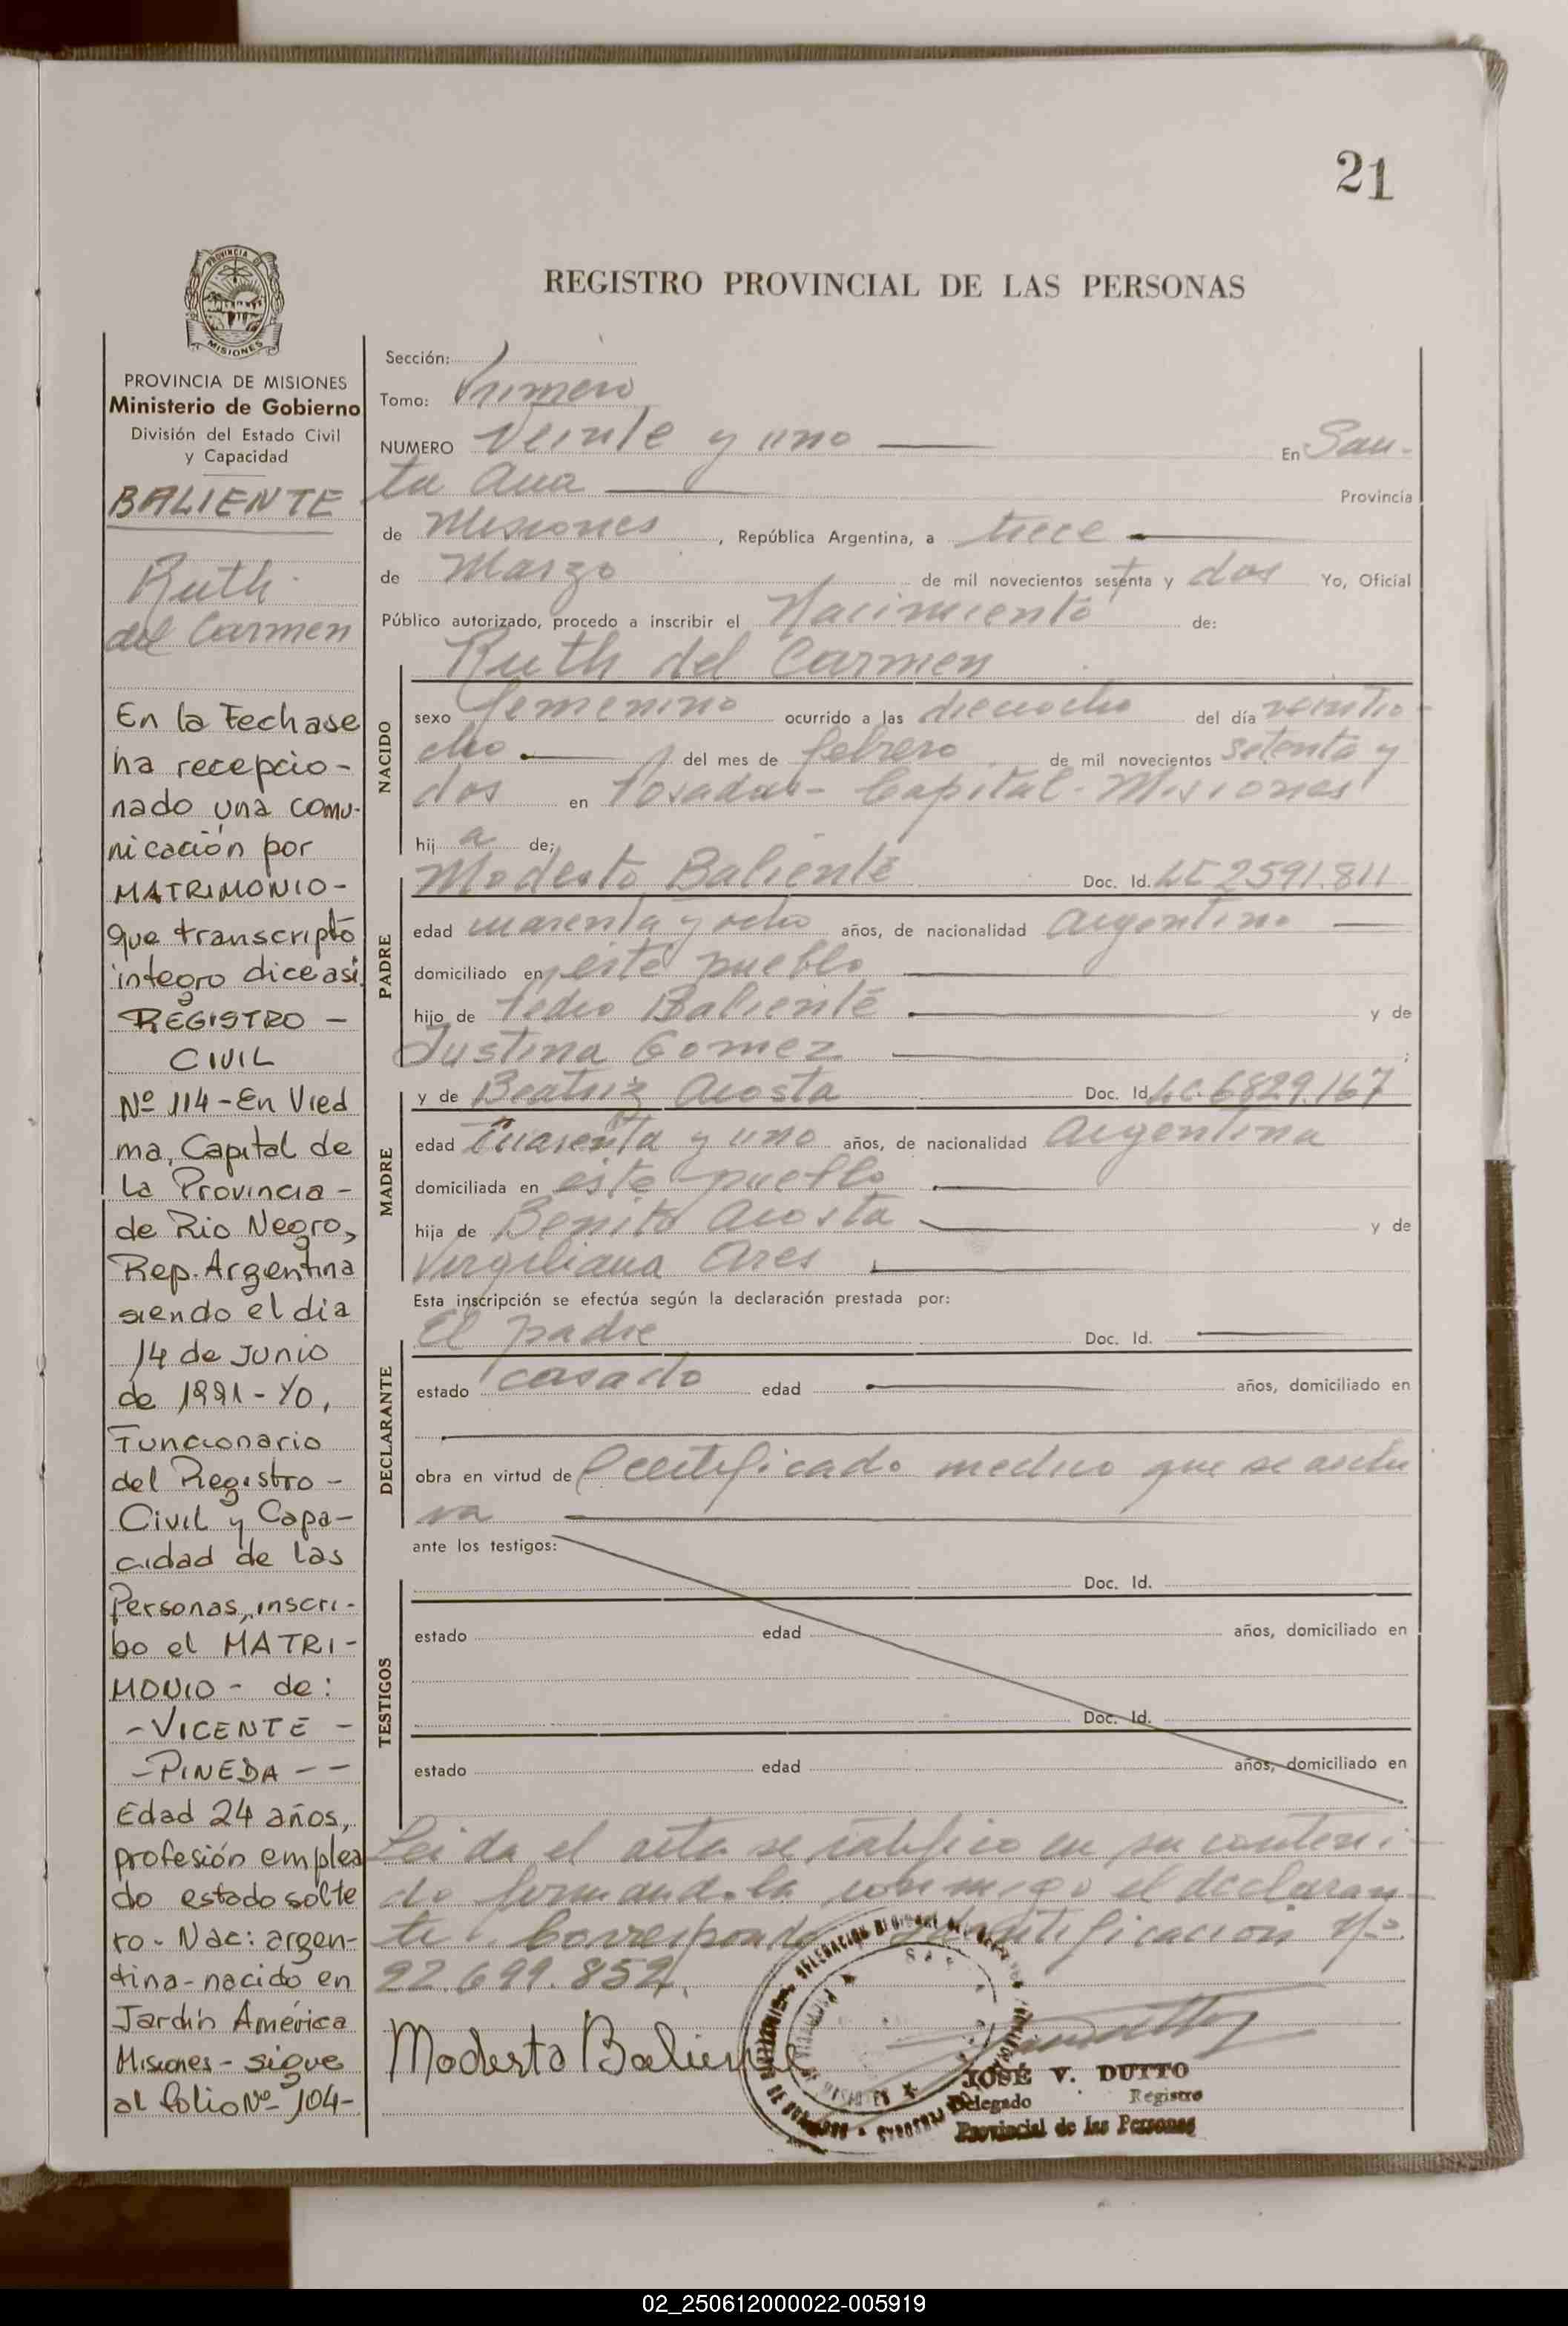 21
REGISTRO PROVINCIAL DE LAS PERSONAS
PROVINCIA DE
MISIONES
PROVINCIA DE MISIONES
Ministerio de Gobierno
División del Estado Civil
y Capacidad
BALIENTE
Ruth
del Carmen
En la Fecha se
ha recepcio-
nado una comu-
nicación por
MATRIMONIO-
que transcripto
integro dice asi.
REGISTRO -
CIVIL
Nº 114 - En Vied
ma, Capital de
La Provincia -
de Rio Negro,
Rep. Argentina
siendo el dia
14 de Junio
de 1991 - Yo,
Funcionario
del Registro -
Civil y Capa-
cidad de las
Personas, inscri-
bo el MATRI-
MONIO - de:
- VICENTE -
- PINEDA - -
Edad 24 años,
profesión emplea
do estado solte
ro - Nac: argen-
tina - nacido en
Jardín América
Misiones - sigue
al folio Nº 104-
Sección:
Tomo: Primero
NUMERO Veinte y uno En San-
ta Ana Provincia
de Misiones, República Argentina, a trece
de Marzo de mil novecientos setenta y dos Yo, Oficial
Público autorizado, procedo a inscribir el Nacimiento de:
Ruth del Carmen
NACIDO
sexo femenino ocurrido a las dieciocho del día veintio-
cho del mes de febrero de mil novecientos setenta y
dos en Posadas - Capital - Misiones
hij a de;
Modesto Baliente Doc. Id. LE 2591.811
PADRE
edad cuarenta y ocho años, de nacionalidad Argentino
domiciliado en este pueblo
hijo de Pedro Baliente y de
Justina Gomez ;
y de Beatriz Acosta Doc. Id. LC. 6829.167
MADRE
edad Cuarenta y uno años, de nacionalidad Argentina
domiciliada en este pueblo
hija de Benito Acosta y de
Virgiliana Ares
Esta inscripción se efectúa según la declaración prestada por:
El padre Doc. Id.
DECLARANTE
estado casado edad años, domiciliado en
obra en virtud de Certificado medico que se archi
va
ante los testigos:
Doc. Id.
TESTIGOS
estado edad años, domiciliado en
Doc. Id.
estado edad años, domiciliado en
Leida el acta se ratifico en su conteni-
do firmandola conmigo el declaran-
te. Corresponde identificacion Nº
22.699.852.
Modesto Baliente
JOSÉ V. DUTTO
Delegado Registro
Provincial de las Personas
02_250612000022-005919